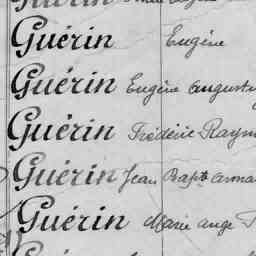 Guérin
Guérin Eugène
Guérin Eugène Auguste
Guérin Frédéric Raym
Guérin Jean Bapte Arma
Guérin Marie Ange